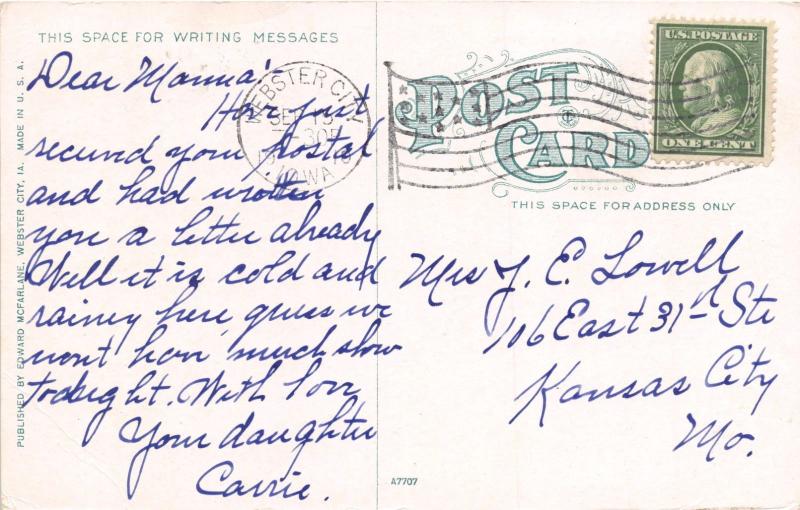 THIS SPACE FOR WRITING MESSAGES
Dear Mamma:-
Have just
secured your postal
and had written
you a letter already
Well it is cold and
rainey here, guess we
wont have much show
to night. With love
Your daughter
Carrie.
PUBLISHED BY EDWARD MCFARLANE, WEBSTER CITY, IA. MADE IN U. S. A.
WEBSTER CITY
SEP
IOWA
POST
CARD
THIS SPACE FOR ADDRESS ONLY
U.S. POSTAGE
ONE CENT
Mrs J. E. Lowell
106 East 31st Ste
Kansas City
Mo.
A7707